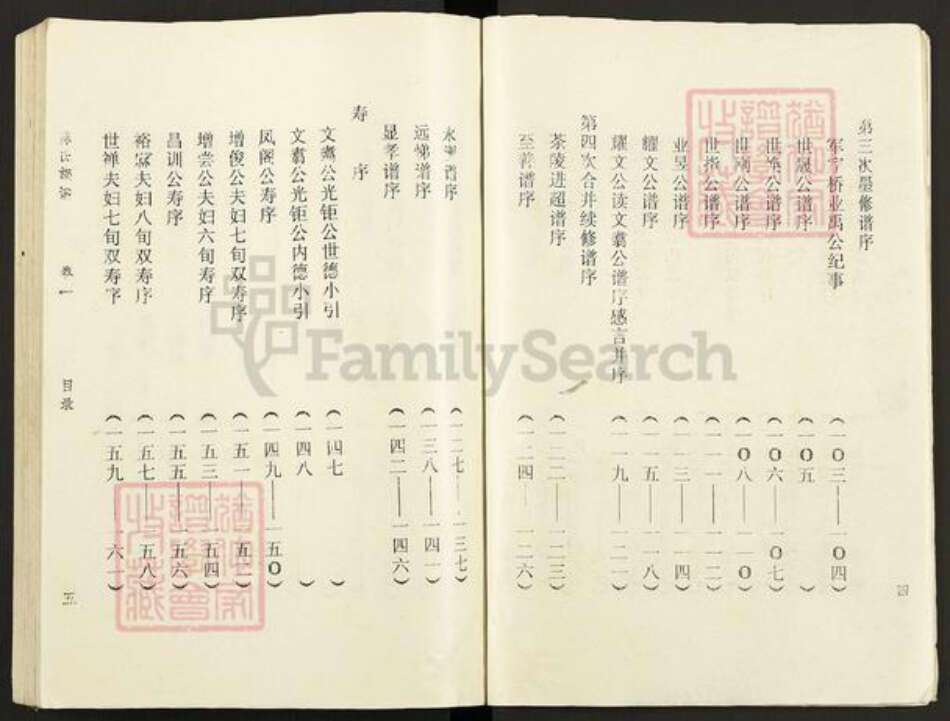 第三次墨修谱序
军字桥业禹公纪事（一〇三——一〇四）
世晟公谱序（一〇五）
世焕公谱序（一〇六——一〇七）
世南公谱序（一〇八——一一〇）
世烨公谱序（一一一——一一二）
业昱公谱序（一一三——一一四）
耀文公谱序（一一五——一一八）
耀文公读文翥公谱序感言并序（一一九——一二一）
第四次合并续修谱序
茶陵进超谱序（一二二——一二三）
至善谱序（一二四——一二六）
四
谱序（一二七——一三七）
远悌谱序（一三八——一四一）
显孝谱序（一四二——一四六）
寿序
文翥公光钜公世德小引（一四七）
文翥公光钜公内德小引（一四八）
凤阁公寿序（一四九——一五〇）
增俊公夫妇七旬双寿序（一五一——一五二）
增尝公夫妇六旬寿序（一五三——一五四）
昌训公寿序（一五五——一五六）
裕霖夫妇八旬双寿序（一五七——一五八）
世禅夫妇七旬双寿序（一五九——一六一）
卷一
目录
五
FamilySearch